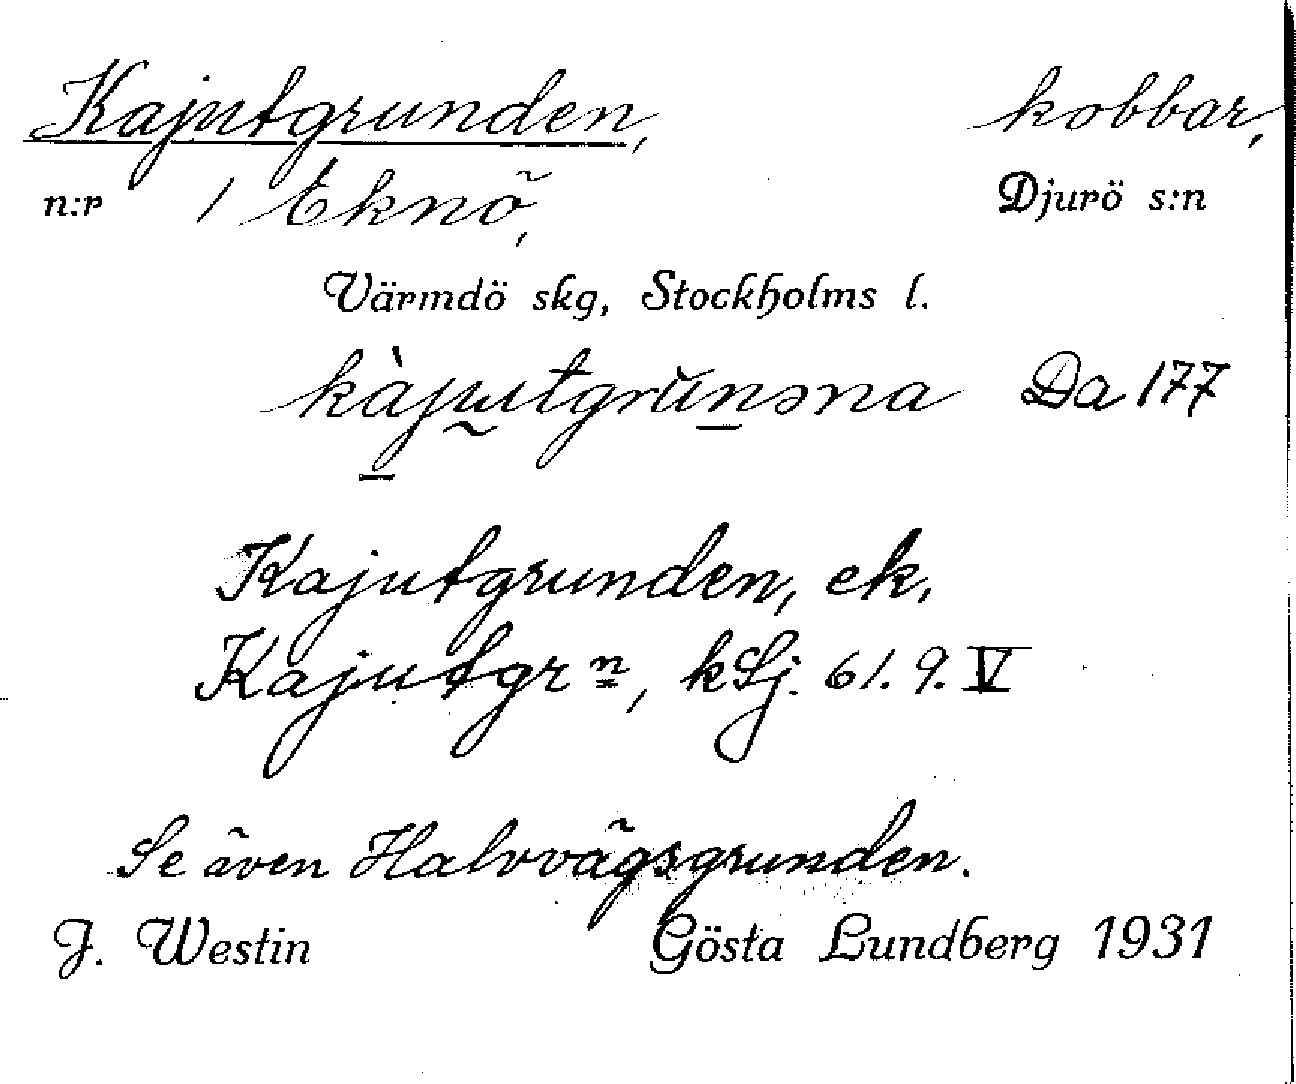 Kajutgrunden, kobbar,
n:r 1 Eknö, Djurö s:n
Värmdö skg, Stockholms l.
kàjutgrunəna Da 177
Kajutgrunden, ek.
Kajutgrn, kSj. 61. 9. V
Se även Halvvägsgrunden.
J. Westin Gösta Lundberg 1931